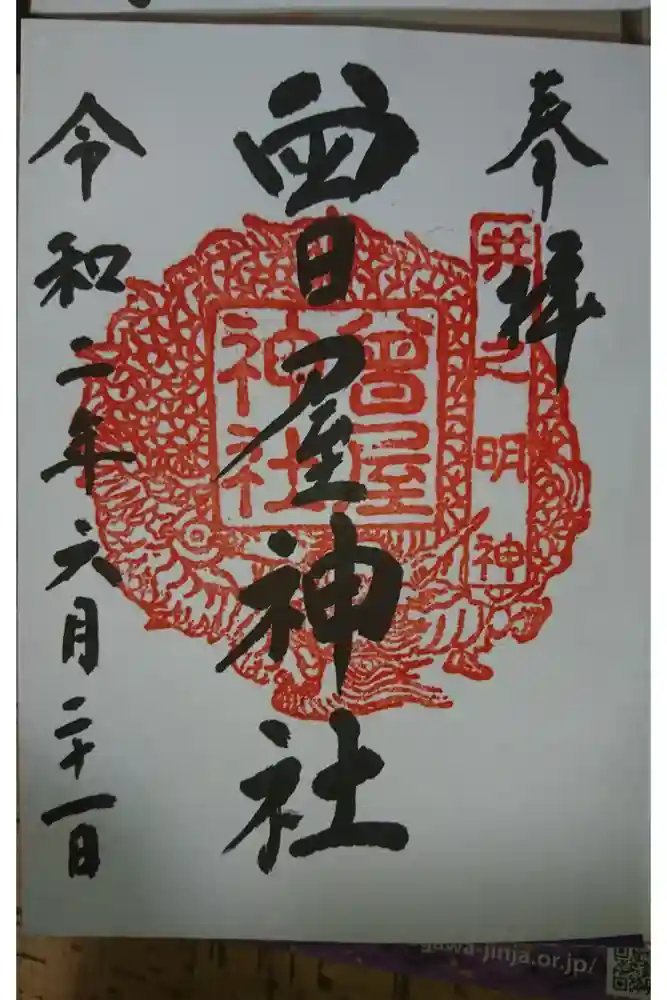 奉拝
井之明神
曽屋神社
曽屋神社
令和二年六月二十一日
gawa-jinja.or.jp/